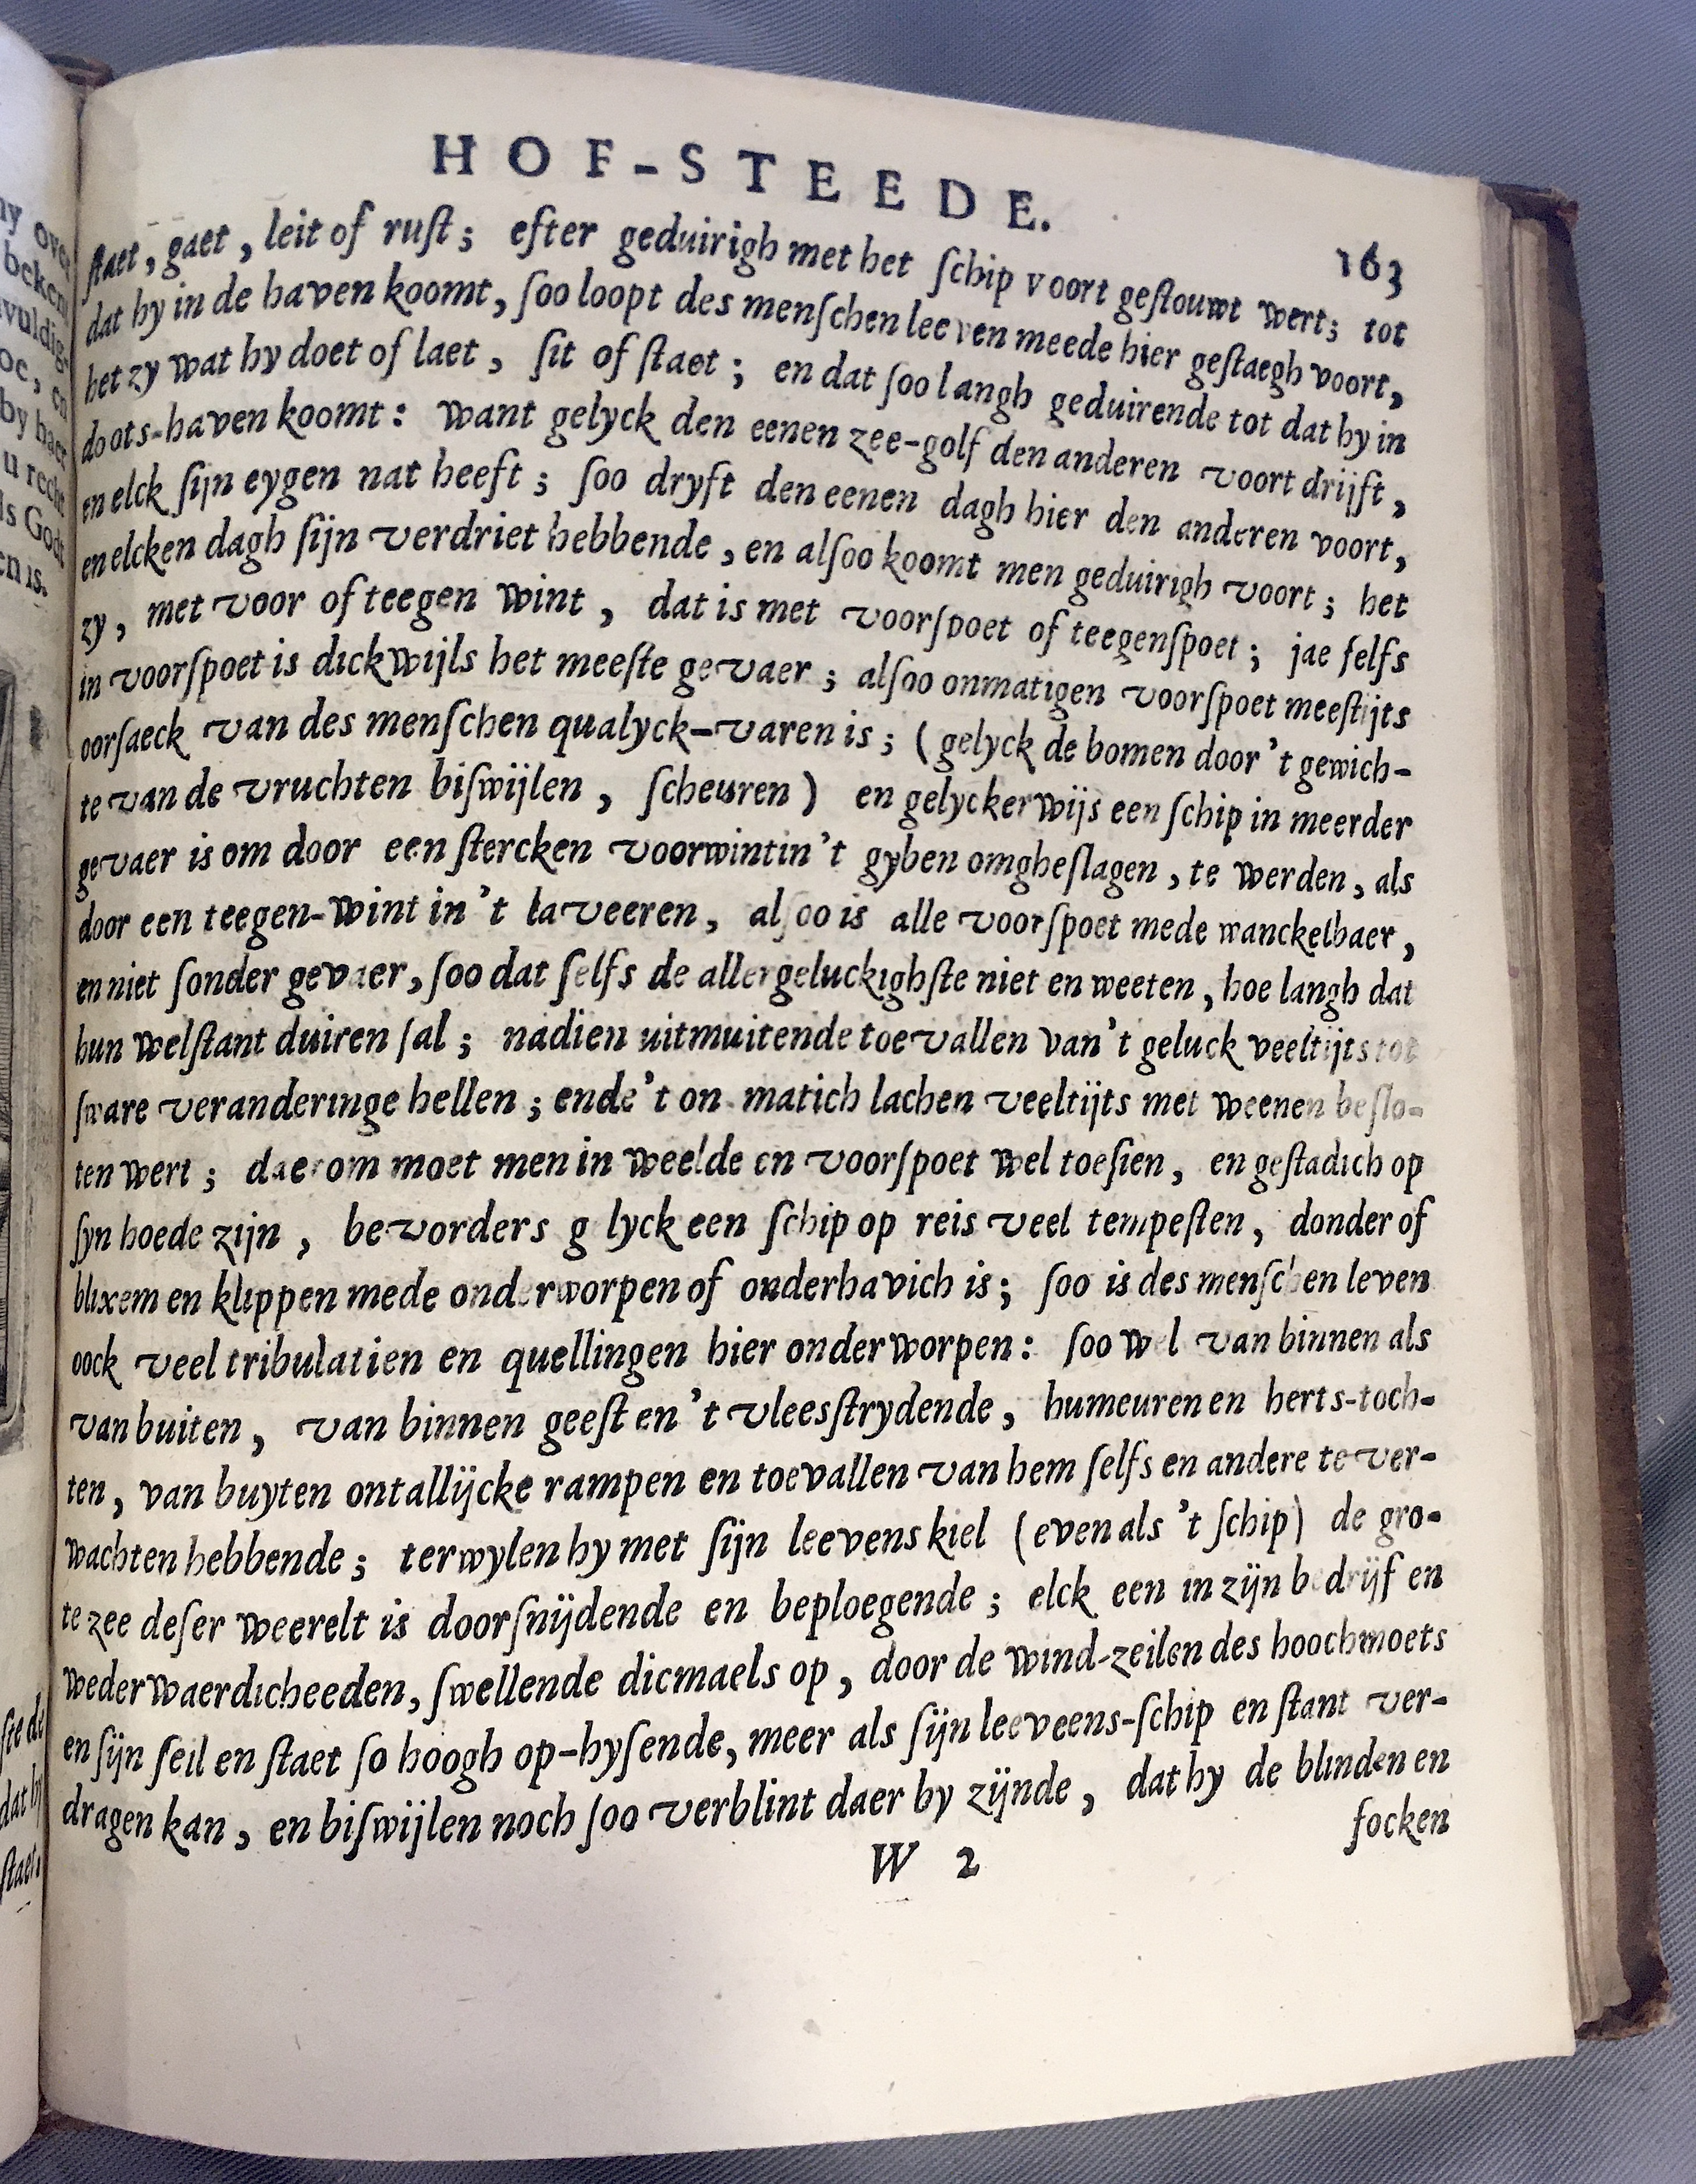 HOF-STEEDE.
163
ſtaet, gaet, leit of ruſt; efter geduirigh met het ſchip voort geſtouwt wert; tot
dat hy in de haven koomt, ſoo loopt des menſchen leeven meede hier geſtaegh voort,
het zy wat hy doet of laet, ſit of ſtaet; en dat ſoo langh geduirende tot dat hy in
doots-haven koomt: want gelyck den eenen zee-golf den anderen voort drijft,
en elck ſijn eygen nat heeft; ſoo dryft den eenen dagh hier den anderen voort,
en elcken dagh ſijn verdriet hebbende, en alſoo koomt men geduirigh voort; het
zy, met voor of teegen wint, dat is met voorſpoet of teegenſpoet; jae ſelfs
in voorſpoet is dickwijls het meeſte gevaer; alſoo onmatigen voorſpoet meeſtijts
oorſaeck van des menſchen qualyck-varen is; (gelyck de bomen door 't gewich-
te van de vruchten biſwijlen, ſcheuren) en gelyckerwijs een ſchip in meerder
gevaer is om door een ſtercken voorwintin't gyben omgheſlagen, te werden, als
door een teegen-wint in't laveeren, alſoo is alle voorſpoet mede wanckelbaer,
en niet ſonder gevaer, ſoo dat ſelfs de allergeluckighſte niet en weeten, hoe langh dat
hun welſtant duiren ſal; nadien uitmuitende toevallen van't geluck veeltijts tot
ſware veranderinge hellen; ende't on-matich lachen veeltijts met weenen beſlo-
ten wert; daerom moet men in weelde en voorſpoet wel toeſien, en geſtadich op
ſyn hoede zijn, bevorders g lyck een ſchip op reis veel tempeſten, donder of
blixem en klippen mede onderworpen of onderhavich is; ſoo is des menſchen leven
oock veel tribulatien en quellingen hier onderworpen: ſoo wel van binnen als
van buiten, van binnen geeſt en't vlees ſtrydende, humeuren en herts-toch-
ten, van buyten ontallijcke rampen en toevallen van hem ſelfs en andere te ver-
wachten hebbende; terwylen hy met ſijn leevens kiel (even als 't ſchip) de gro-
te zee deſer weerelt is doorſnijdende en beploegende; elck een in zijn bedrijf en
wederwaerdicheeden, ſwellende dicmaels op, door de wind-zeilen des hoochmoets
en ſijn ſeil en ſtaet ſo hoogh op-hyſende, meer als ſijn leeveens-ſchip en ſtant ver-
dragen kan, en biſwijlen noch ſoo verblint daer by zijnde, dat hy de blinden en
W 2
focken